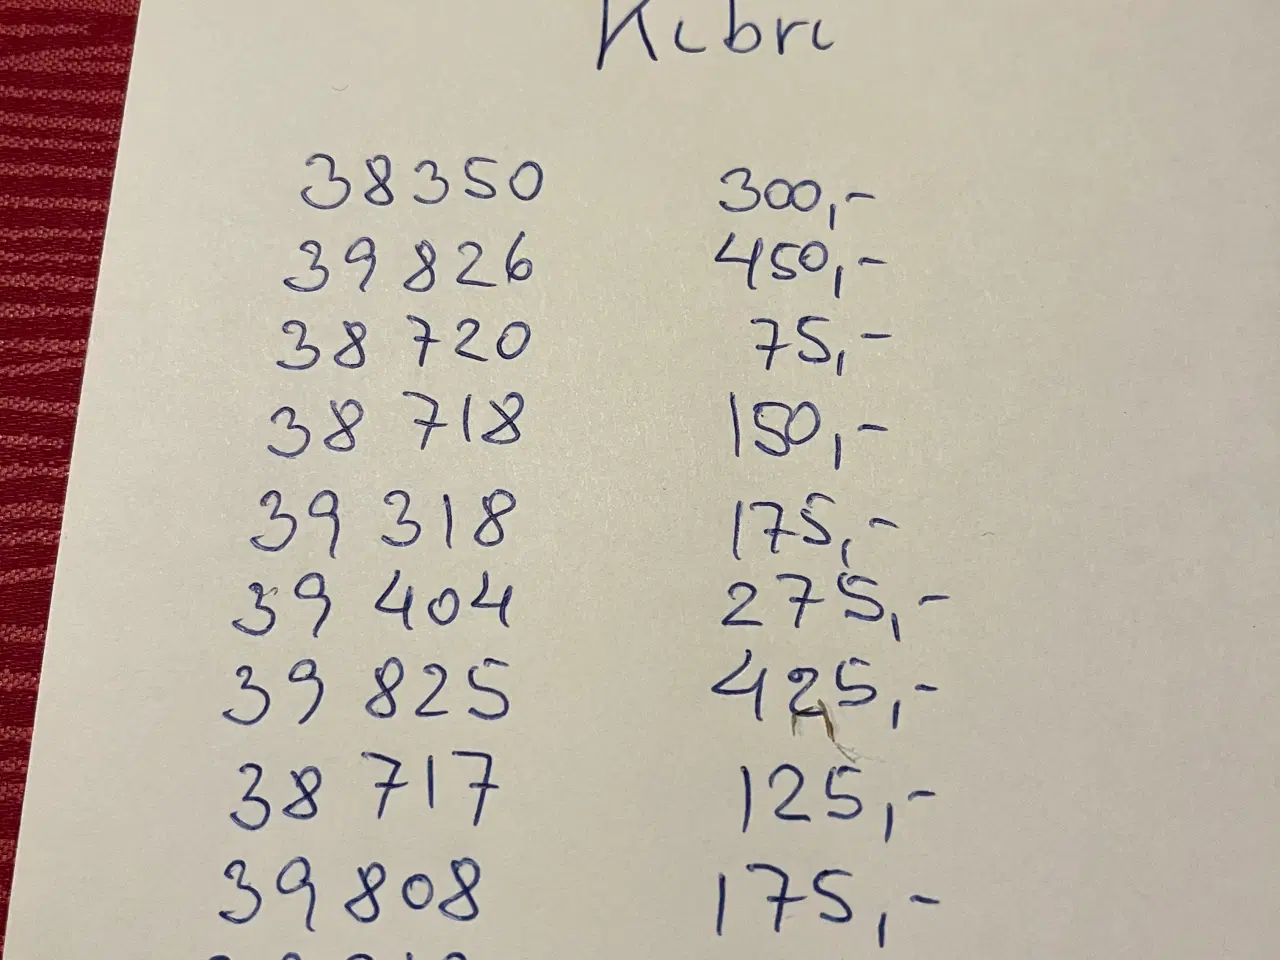 Kibri
38350 300,-
39 826 450,-
38 720 75,-
38 718 150,-
39 318 175,-
39 404 275,-
39 825 425,-
38 717 125,-
39 808 175,-